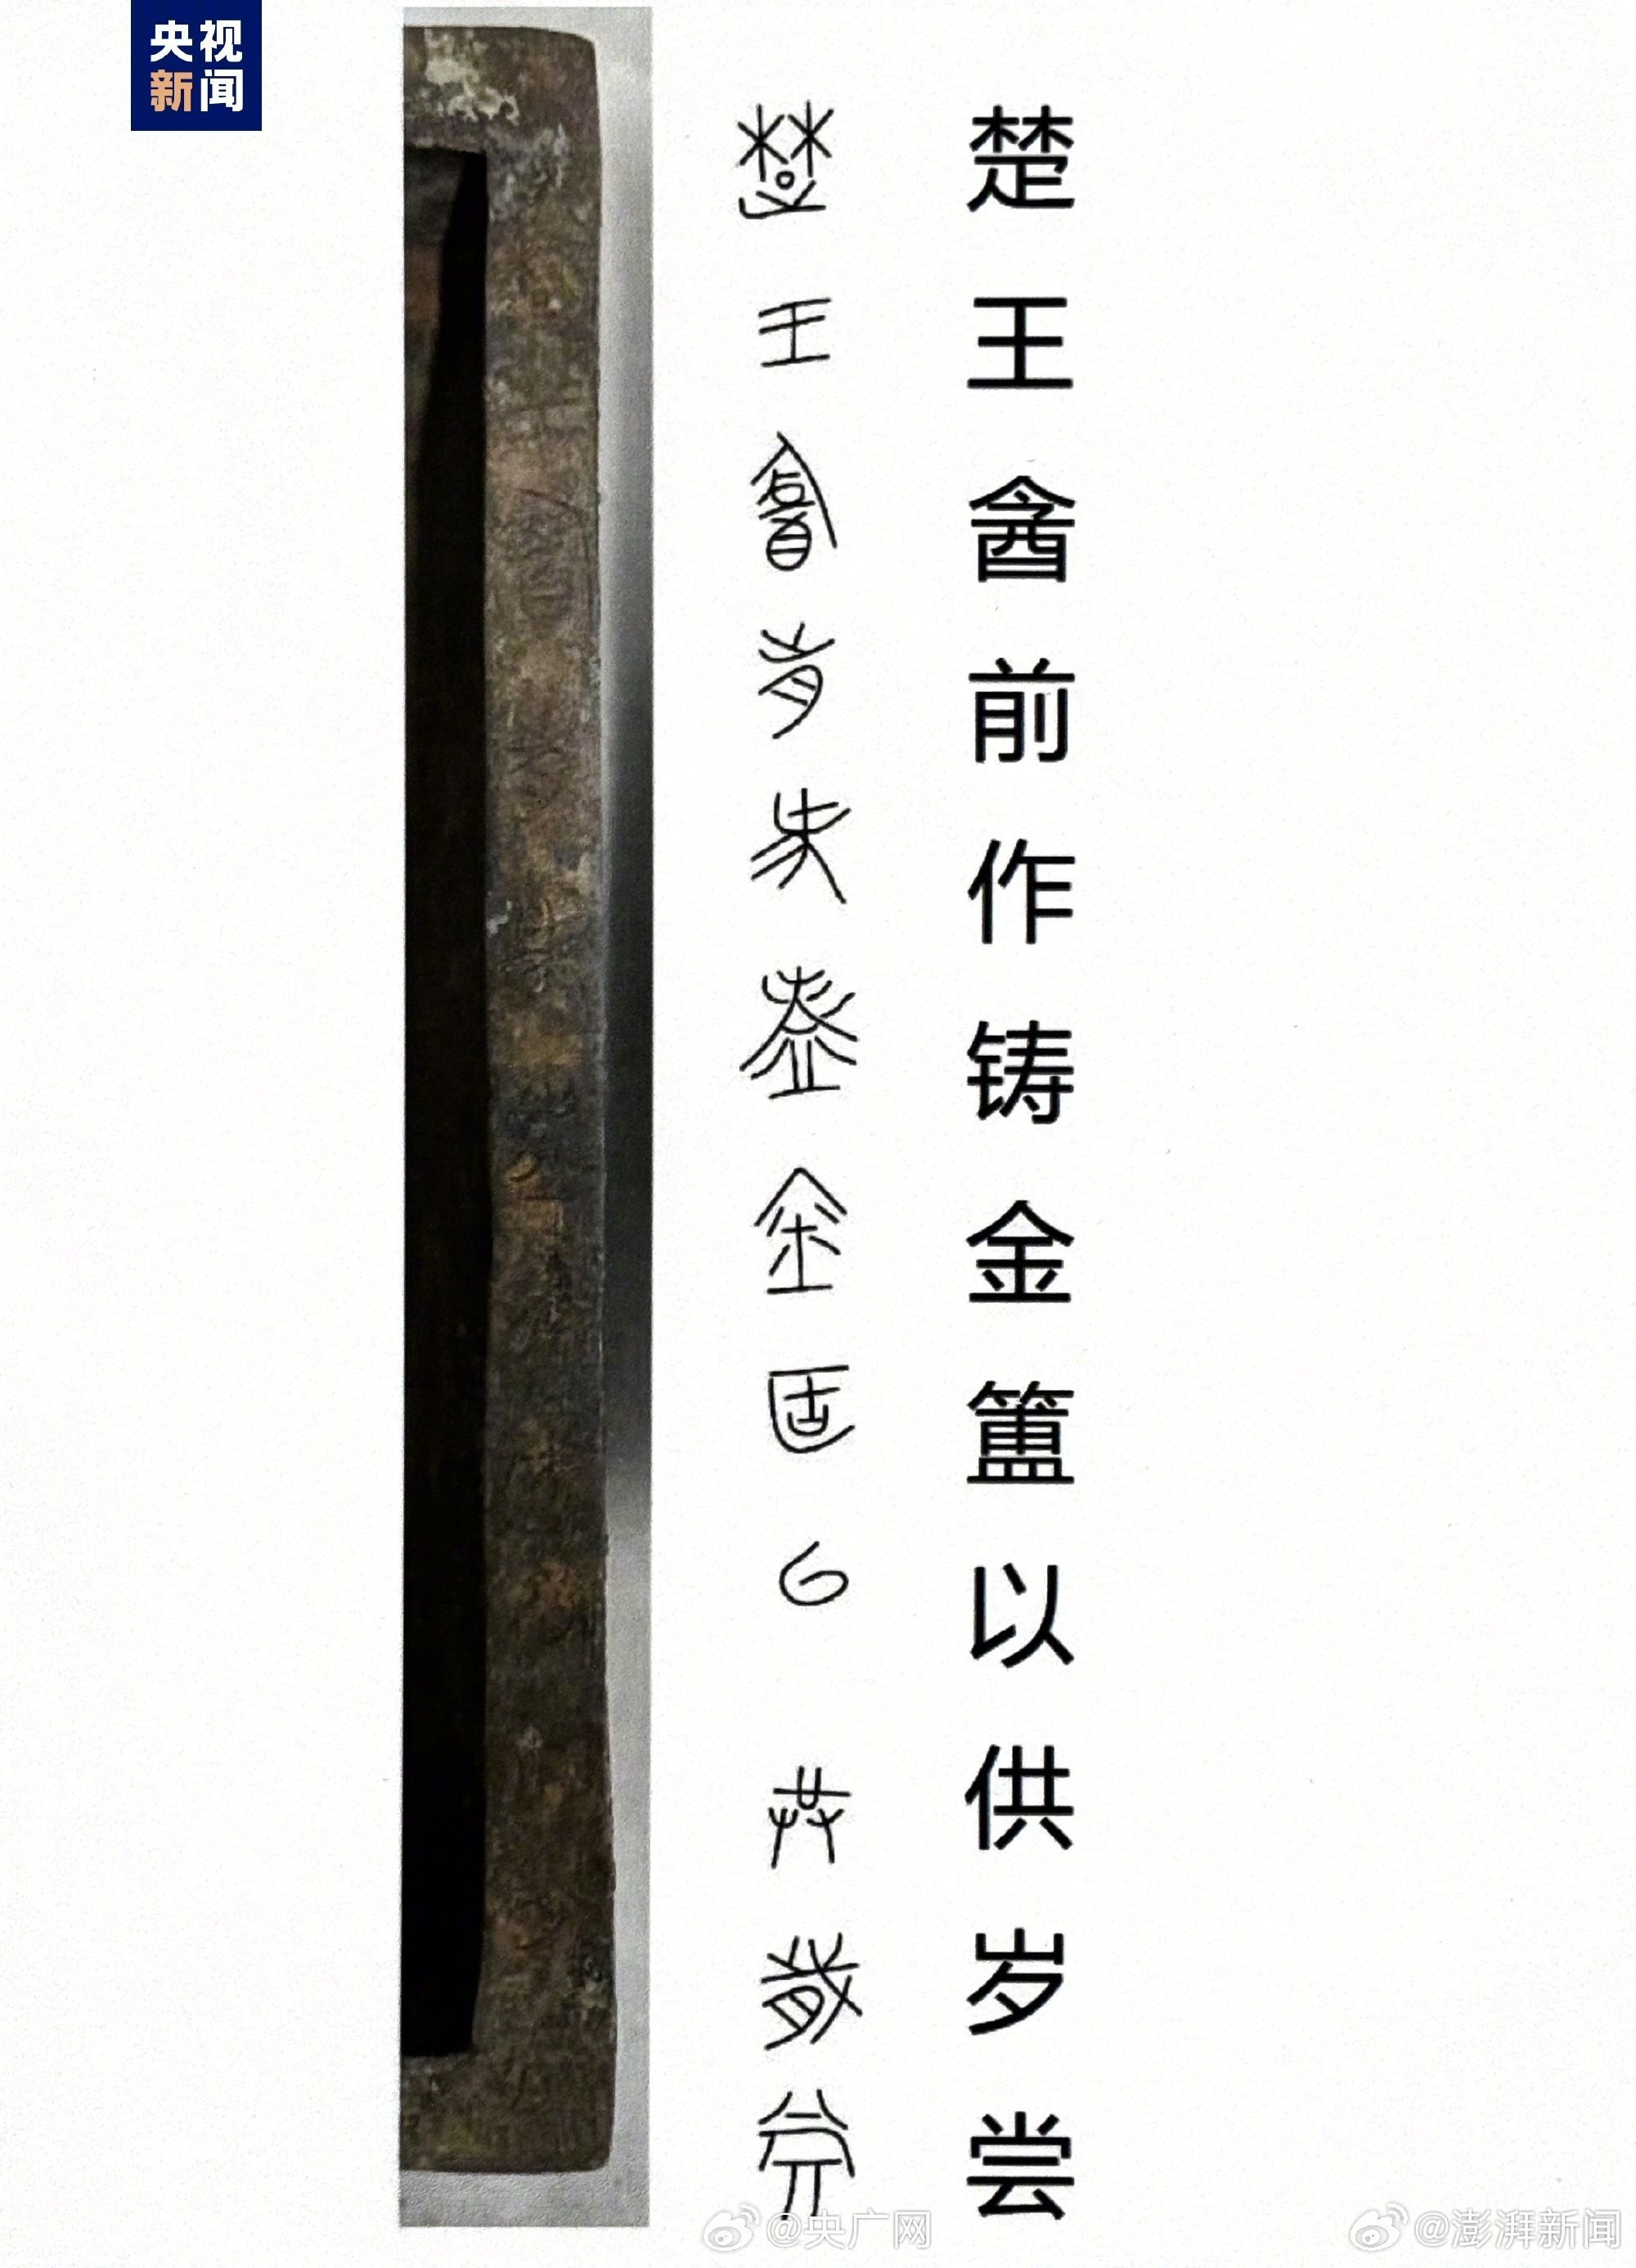 央视
新闻
楚王酓前作铸金簠以供岁尝
@央广网
@澎湃新闻